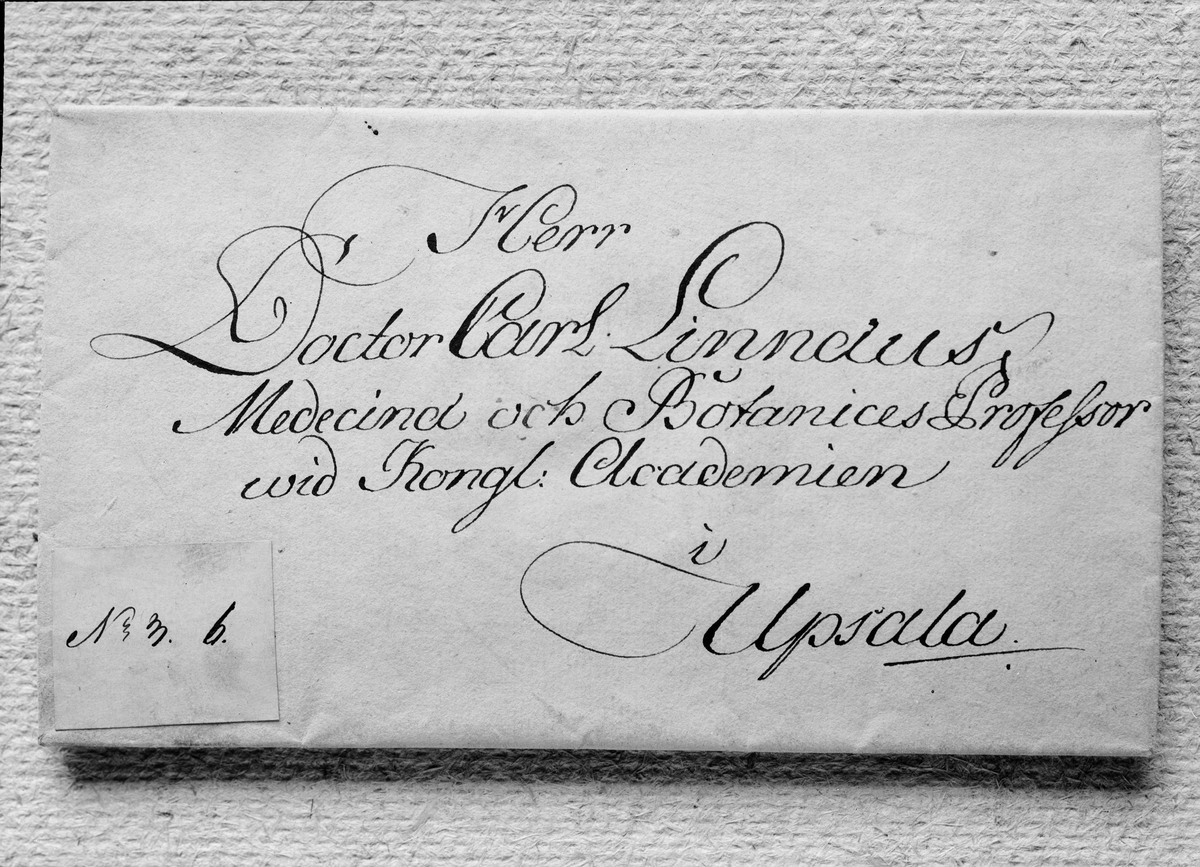 Herr
Doctor Carl Linnæus,
Medecinæ och Botanices Professor
wid Kongl: Academien
i
Upsala.
No 3. 6.